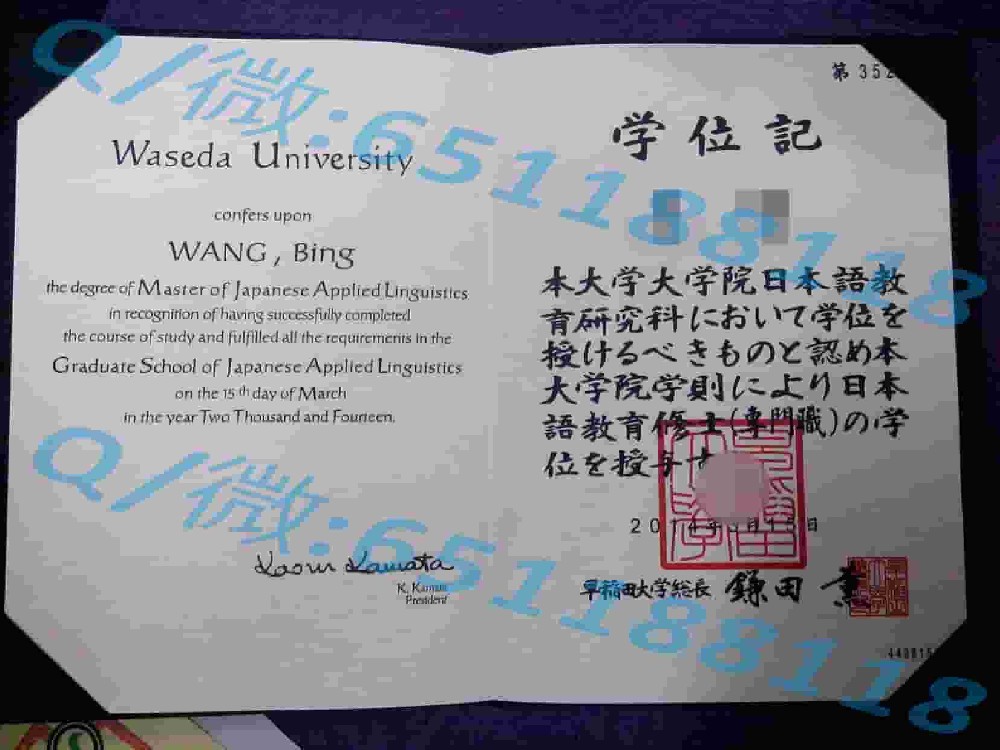 Q/微:651188118
Waseda University
confers upon
WANG, Bing
the degree of Master of Japanese Applied Linguistics
in recognition of having successfully completed
the course of study and fulfilled all the requirements in the
Graduate School of Japanese Applied Linguistics
on the 15th day of March
in the year Two Thousand and Fourteen.
Kaoru Kamata
K. Kamata
President
第 352
学位記
本大学大学院日本語教
育研究科において学位を
授けるべきものと認め本
大学院学則により日本
語教育修士(専門職)の学
位を授与す
2014年3月15日
早稲田大学総長 鎌田 薫
Q/微:651188118